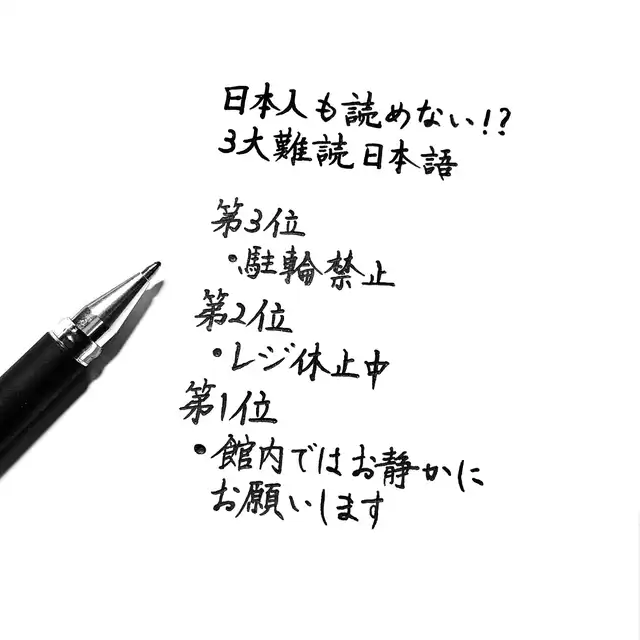 日本人も読めない!?
3大難読日本語
第3位
・駐輪禁止
第2位
・レジ休止中
第1位
・館内ではお静かに
お願いします